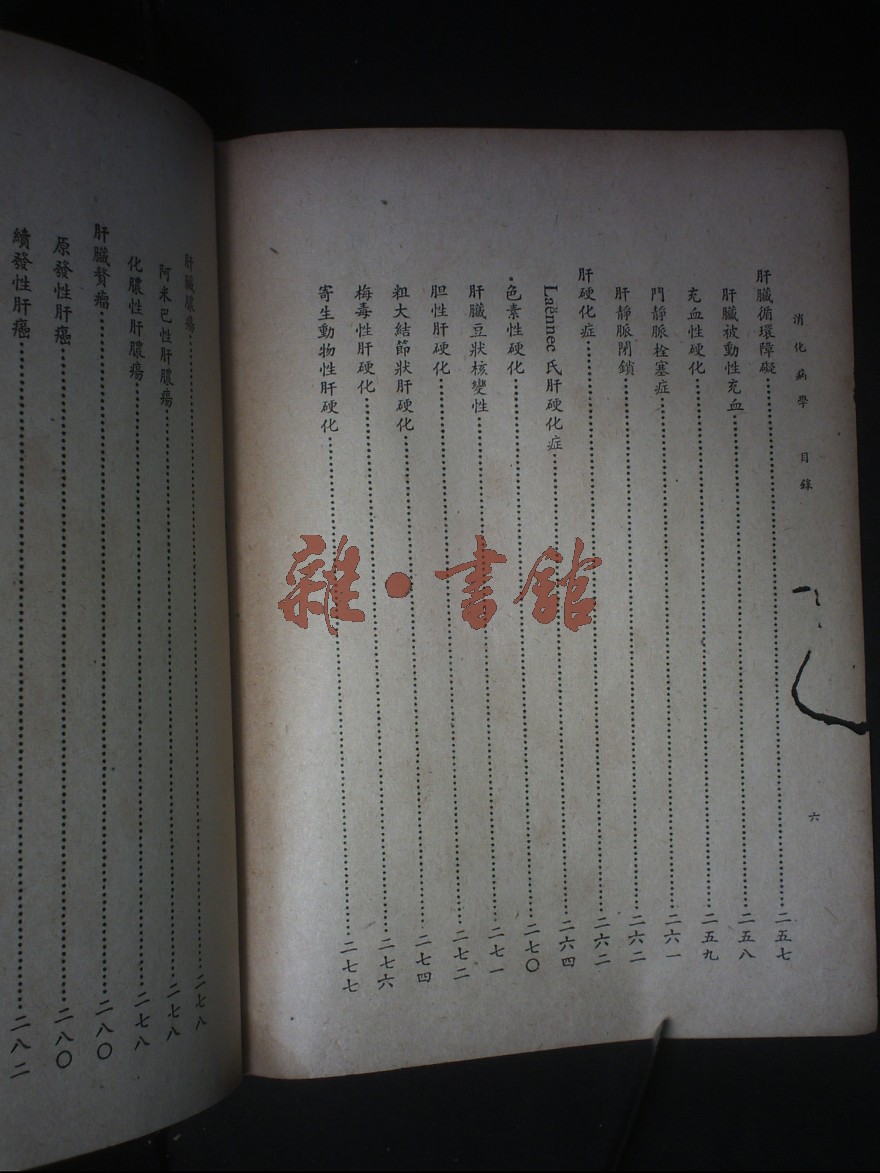 消化病學　目錄　六
肝臟循環障礙……二五七
肝臟被動性充血……二五八
充血性硬化……二五九
門靜脈栓塞症……二六一
肝靜脈閉鎖……二六二
肝硬化症……二六二
Laënnec 氏肝硬化症……二六四
色素性硬化……二七〇
肝臟豆狀核變性……二七一
胆性肝硬化……二七二
粗大結節狀肝硬化……二七四
梅毒性肝硬化……二七六
寄生動物性肝硬化……二七七
肝臟膿瘍……二七八
阿米巴性肝膿瘍……二七八
化膿性肝膿瘍……二七八
肝臟贅瘤……二八〇
原發性肝癌……二八〇
續發性肝癌……二八二
雜·書館